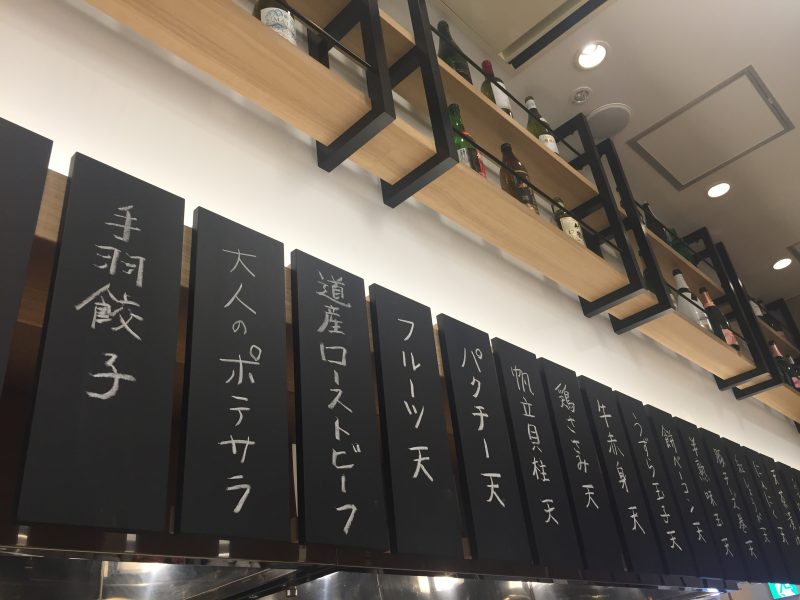 手羽餃子
大人のポテサラ
道産ローストビーフ
フルーツ天
パクチー天
帆立貝柱天
鶏ささみ天
牛赤身天
うずら玉子天
餅ベーコン天
半熟味玉天